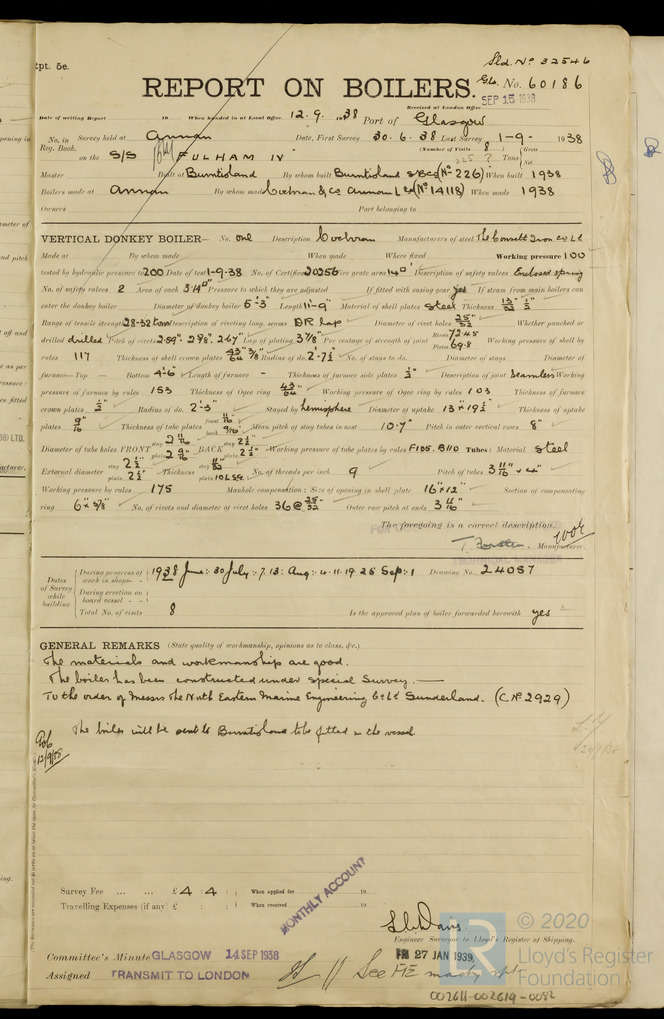 Rpt. 5e.
Sld. No 32546
REPORT ON BOILERS.
Gls. No. 60186
Received at London Office SEP 15 1938
Date of writing Report 19 When handed in at Local Office 12.9.1938 Port of Glasgow
No. in Reg. Book. Survey held at Annan Date, First Survey 30.6.38 Last Survey 1-9-1938
(Number of Visits 8)
on the S/S FULHAM IV Tons Gross Net
Master Built at Burntisland By whom built Burntisland SBCo (No 226) When built 1938
Boilers made at Annan By whom made Cochran & Co Annan Ld (No 14118) When made 1938
Owners Port belonging to
VERTICAL DONKEY BOILER— No. one Description Cochran Manufacturers of steel The Consett Iron Co Ld
Made at By whom made When made Where fixed Working pressure 100
tested by hydraulic pressure to 200 Date of test 1-9-38 No. of Certificate 20256 Fire grate area 14□' Description of safety valves Enclosed spring
No. of safety valves 2 Area of each 3.14□" Pressure to which they are adjusted If fitted with easing gear yes If steam from main boilers can
enter the donkey boiler Diameter of donkey boiler 5'-3" Length 11'-9" Material of shell plates steel Thickness 13/32" 1/2"
Range of tensile strength 28-32 tons Description of riveting long. seams DR lap Diameter of rivet holes 25/32" Whether punched or
drilled drilled Pitch of rivets 2.59" 2 5/8" 2.67" Lap of plating 3 7/8" Per centage of strength of joint Rivets 72.45 Plates 69.8 Working pressure of shell by
rules 117 Thickness of shell crown plates 43/64" 3/8" Radius of do. 2'-7 1/2" No. of stays to do. Diameter of stays Diameter of
furnace—Top — Bottom 4'-6" Length of furnace - Thickness of furnace side plates 1/2" Description of joint Seamless Working
pressure of furnace by rules 153 Thickness of Ogee ring 43/64" Working pressure of Ogee ring by rules 103 Thickness of furnace
crown plates 1/2" Radius of do. 2'-3" Stayed by hemisphere Diameter of uptake 13"×19 1/2" Thickness of uptake
plates 9/16" Thickness of tube plates front 11/16" back 9/16" Mean pitch of stay tubes in nest 10.7" Pitch in outer vertical rows 8"
Diameter of tube holes FRONT stay 2 11/16" plain 2 9/16" BACK stay 2 1/2" plain 2 1/2" Working pressure of tube plates by rules F105. B110 Tubes: Material steel
External diameter stay 2 1/2" plain 2 1/2" Thickness stay plain 10 LSG No. of threads per inch 9 Pitch of tubes 3 11/16" × 4"
Working pressure by rules 175 Manhole compensation: Size of opening in shell plate 16"×12" Section of compensating
ring 6"×5/8" No. of rivets and diameter of rivet holes 36 @ 25/32" Outer row pitch at ends 3 11/16"
The foregoing is a correct description,
Manufacturer.
Dates of Survey while building
During progress of work in shops - - 1938 June: 30 July: 7. 13: Aug: 4. 11. 19. 25 Sep: 1 Drawing No. 24087
During erection on board vessel - - -
Total No. of visits 8 Is the approved plan of boiler forwarded herewith yes
GENERAL REMARKS (State quality of workmanship, opinions as to class, &c.)
The materials and workmanship are good.
The boiler has been constructed under special survey.—
To the order of Messrs The North Eastern Marine Engineering Co Ld Sunderland. (C No 2929)
The boiler will be sent to Burntisland to be fitted in the vessel
12/9/38
Survey Fee ... ... £ 4 4 : When applied for 19
Travelling Expenses (if any) £ : : When received 19
MONTHLY ACCOUNT
Engineer Surveyor to Lloyd's Register of Shipping.
Committee's Minute GLASGOW 14 SEP 1938
FRI 27 JAN 1939
Assigned TRANSMIT TO LONDON
See FE machy rpt
© 2020
LR
Lloyd's Register
Foundation
002611-002619-0082